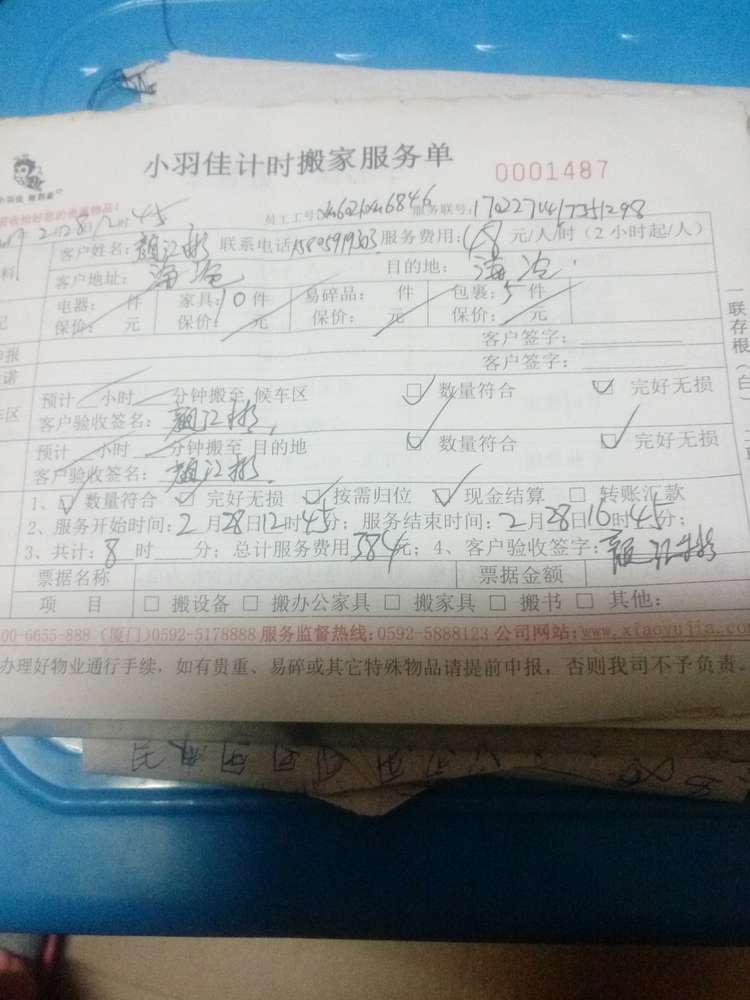 小羽佳计时搬家服务单 0001487
员工工号 服务联号:
2月28日12时45
客户姓名: 联系电话 服务费用:48元/人/时(2小时起/人)
客户地址:海沧 目的地:海沧
电器: 件 家具:10件 易碎品: 件 包裹:5件
保价: 元 保价: 元 保价: 元 保价: 元
客户签字:
客户签字:
预计 小时 分钟搬至 候车区 ☑ 数量符合 ☑ 完好无损
客户验收签名:
预计 小时 分钟搬至 目的地 ☑ 数量符合 ☑ 完好无损
客户验收签名:
1、☑ 数量符合 ☑ 完好无损 ☑ 按需归位 ☑ 现金结算 □ 转账汇款
2、服务开始时间:2月28日12时45分;服务结束时间:2月28日16时45分;
3、共计:8时 分;总计服务费用384元;4、客户验收签字:
票据名称 票据金额
项 目 □ 搬设备 □ 搬办公家具 □ 搬家具 □ 搬书 □ 其他:
00-6655-888 (厦门)0592-5178888 服务监督热线:0592-5888123 公司网站:www.xiaoyujia.com
办理好物业通行手续,如有贵重、易碎或其它特殊物品请提前申报,否则我司不予负责。
一联存根(白)